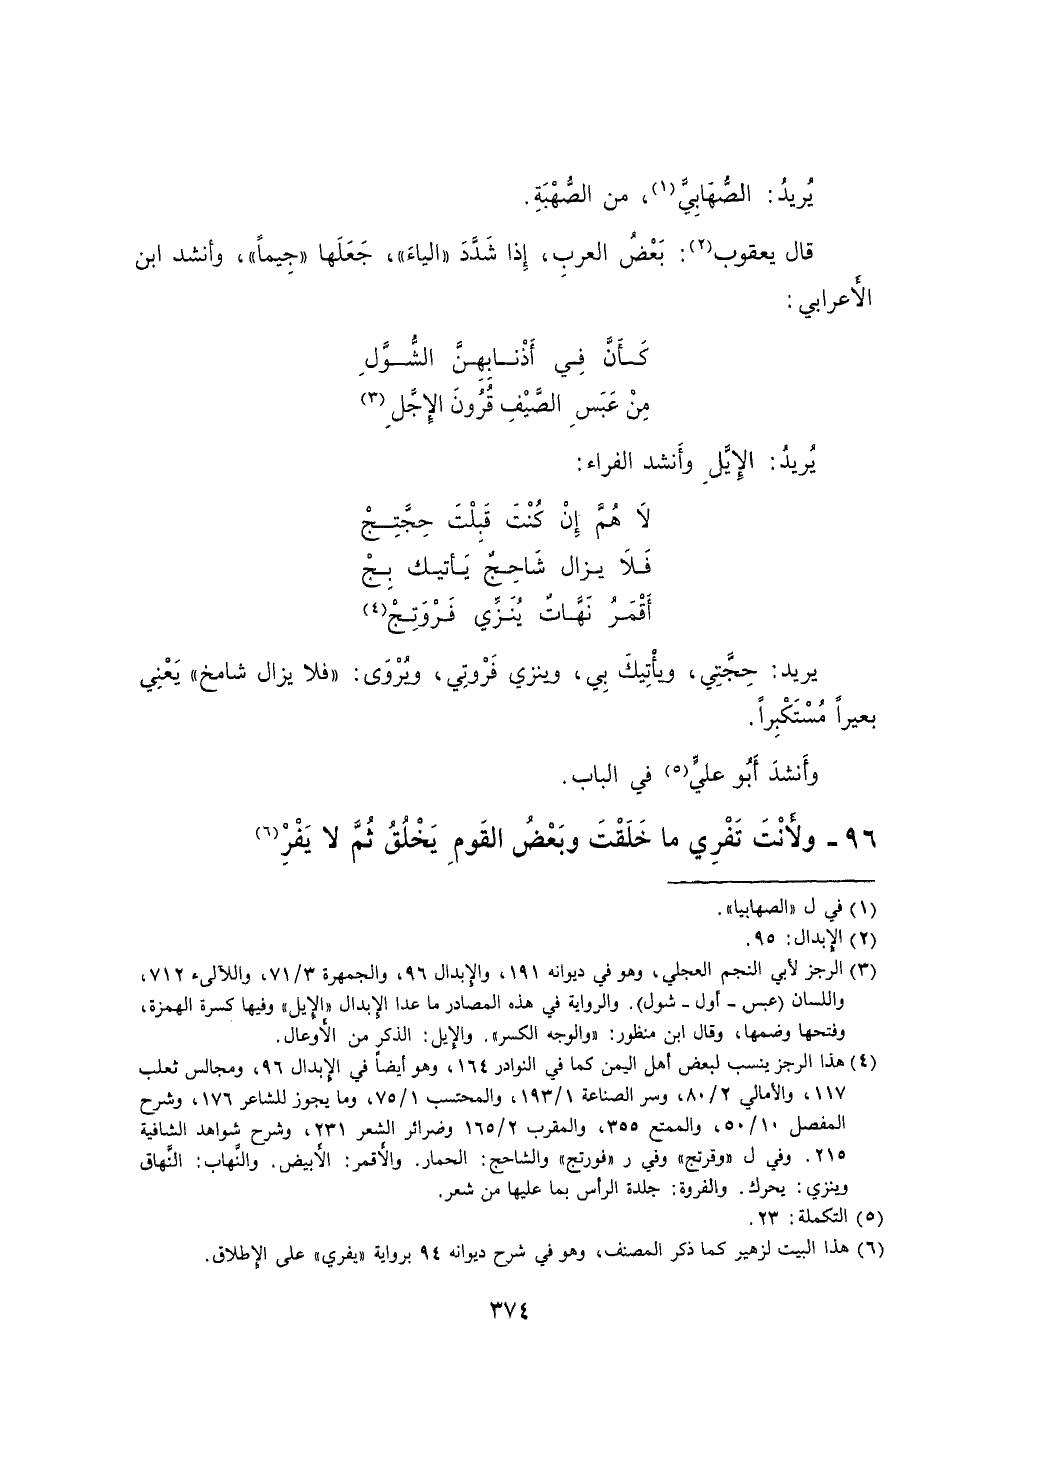 يُرِيدُ: الصُّهَابِيَّ(١)، من الصُّهْبَةِ.
قال يعقوب(٢): بَعْضُ العربِ، إِذا شَدَّدَ «الياءَ»، جَعَلَها «جِيماً»، وأنشد ابن
الأَعرابي:
كَـأَنَّ فِـي أَذْنـابِهـنَّ الشُّـوَّلِ
مِنْ عَبَسِ الصَّيْفِ قُرُونَ الإِجَّلِ(٣)
يُرِيدُ: الإِيَّلِ وأَنشد الفراء:
لاَ هُمَّ إِنْ كُنْتَ قَبِلْتَ حِجَّتِـجْ
فَـلاَ يـزال شَاحِـجٌ يَـأتيـك بِـجْ
أَقْمَـرُ نَهَّـاتٌ يُنَـزِّي فَـرْوَتِـجْ(٤)
يريد: حِجَّتِي، ويأْتِيكَ بِي، وينزي فَرْوتِي، ويُرْوَى: «فلا يزال شامخ» يَعْنِي
بعيراً مُسْتَكْبِراً.
وأَنشدَ أَبُو عليٍّ(٥) في الباب.
٩٦ - ولأَنْتَ تَفْرِي ما خَلَقْتَ وبَعْضُ القَومِ يَخْلُقُ ثُمَّ لا يَفْرِ(٦)
(١) في ل «الصهابيا».
(٢) الإِبدال: ٩٥.
(٣) الرجز لأبي النجم العجلي، وهو في ديوانه ١٩١، والإِبدال ٩٦، والجمهرة ٧١/٣، واللآلىء ٧١٢،
واللسان (عبس - أول - شول). والرواية في هذه المصادر ما عدا الإِبدال «الإِيل» وفيها كسرة الهمزة،
وفتحها وضمها، وقال ابن منظور: «والوجه الكسر». والإيل: الذكر من الأَوعال.
(٤) هذا الرجز ينسب لبعض أهل اليمن كما في النوادر ١٦٤، وهو أيضاً في الإِبدال ٩٦، ومجالس ثعلب
١١٧، والأمالي ٨٠/٢، وسر الصناعة ١٩٣/١، والمحتسب ٧٥/١، وما يجوز للشاعر ١٧٦، وشرح
المفصل ٥٠/١٠، والممتع ٣٥٥، والمقرب ١٦٥/٢ وضرائر الشعر ٢٣١، وشرح شواهد الشافية
٢١٥. وفي ل «وقرتج» وفي ر «فورتج» والشاحج: الحمار. والأَقمر: الأَبيض. والنَّهاب: النَّهاق
وينزي: يحرك. والفروة: جلدة الرأس بما عليها من شعر.
(٥) التكملة: ٢٣.
(٦) هذا البيت لزهير كما ذكر المصنف، وهو في شرح ديوانه ٩٤ برواية «يفري» على الإِطلاق.
٣٧٤